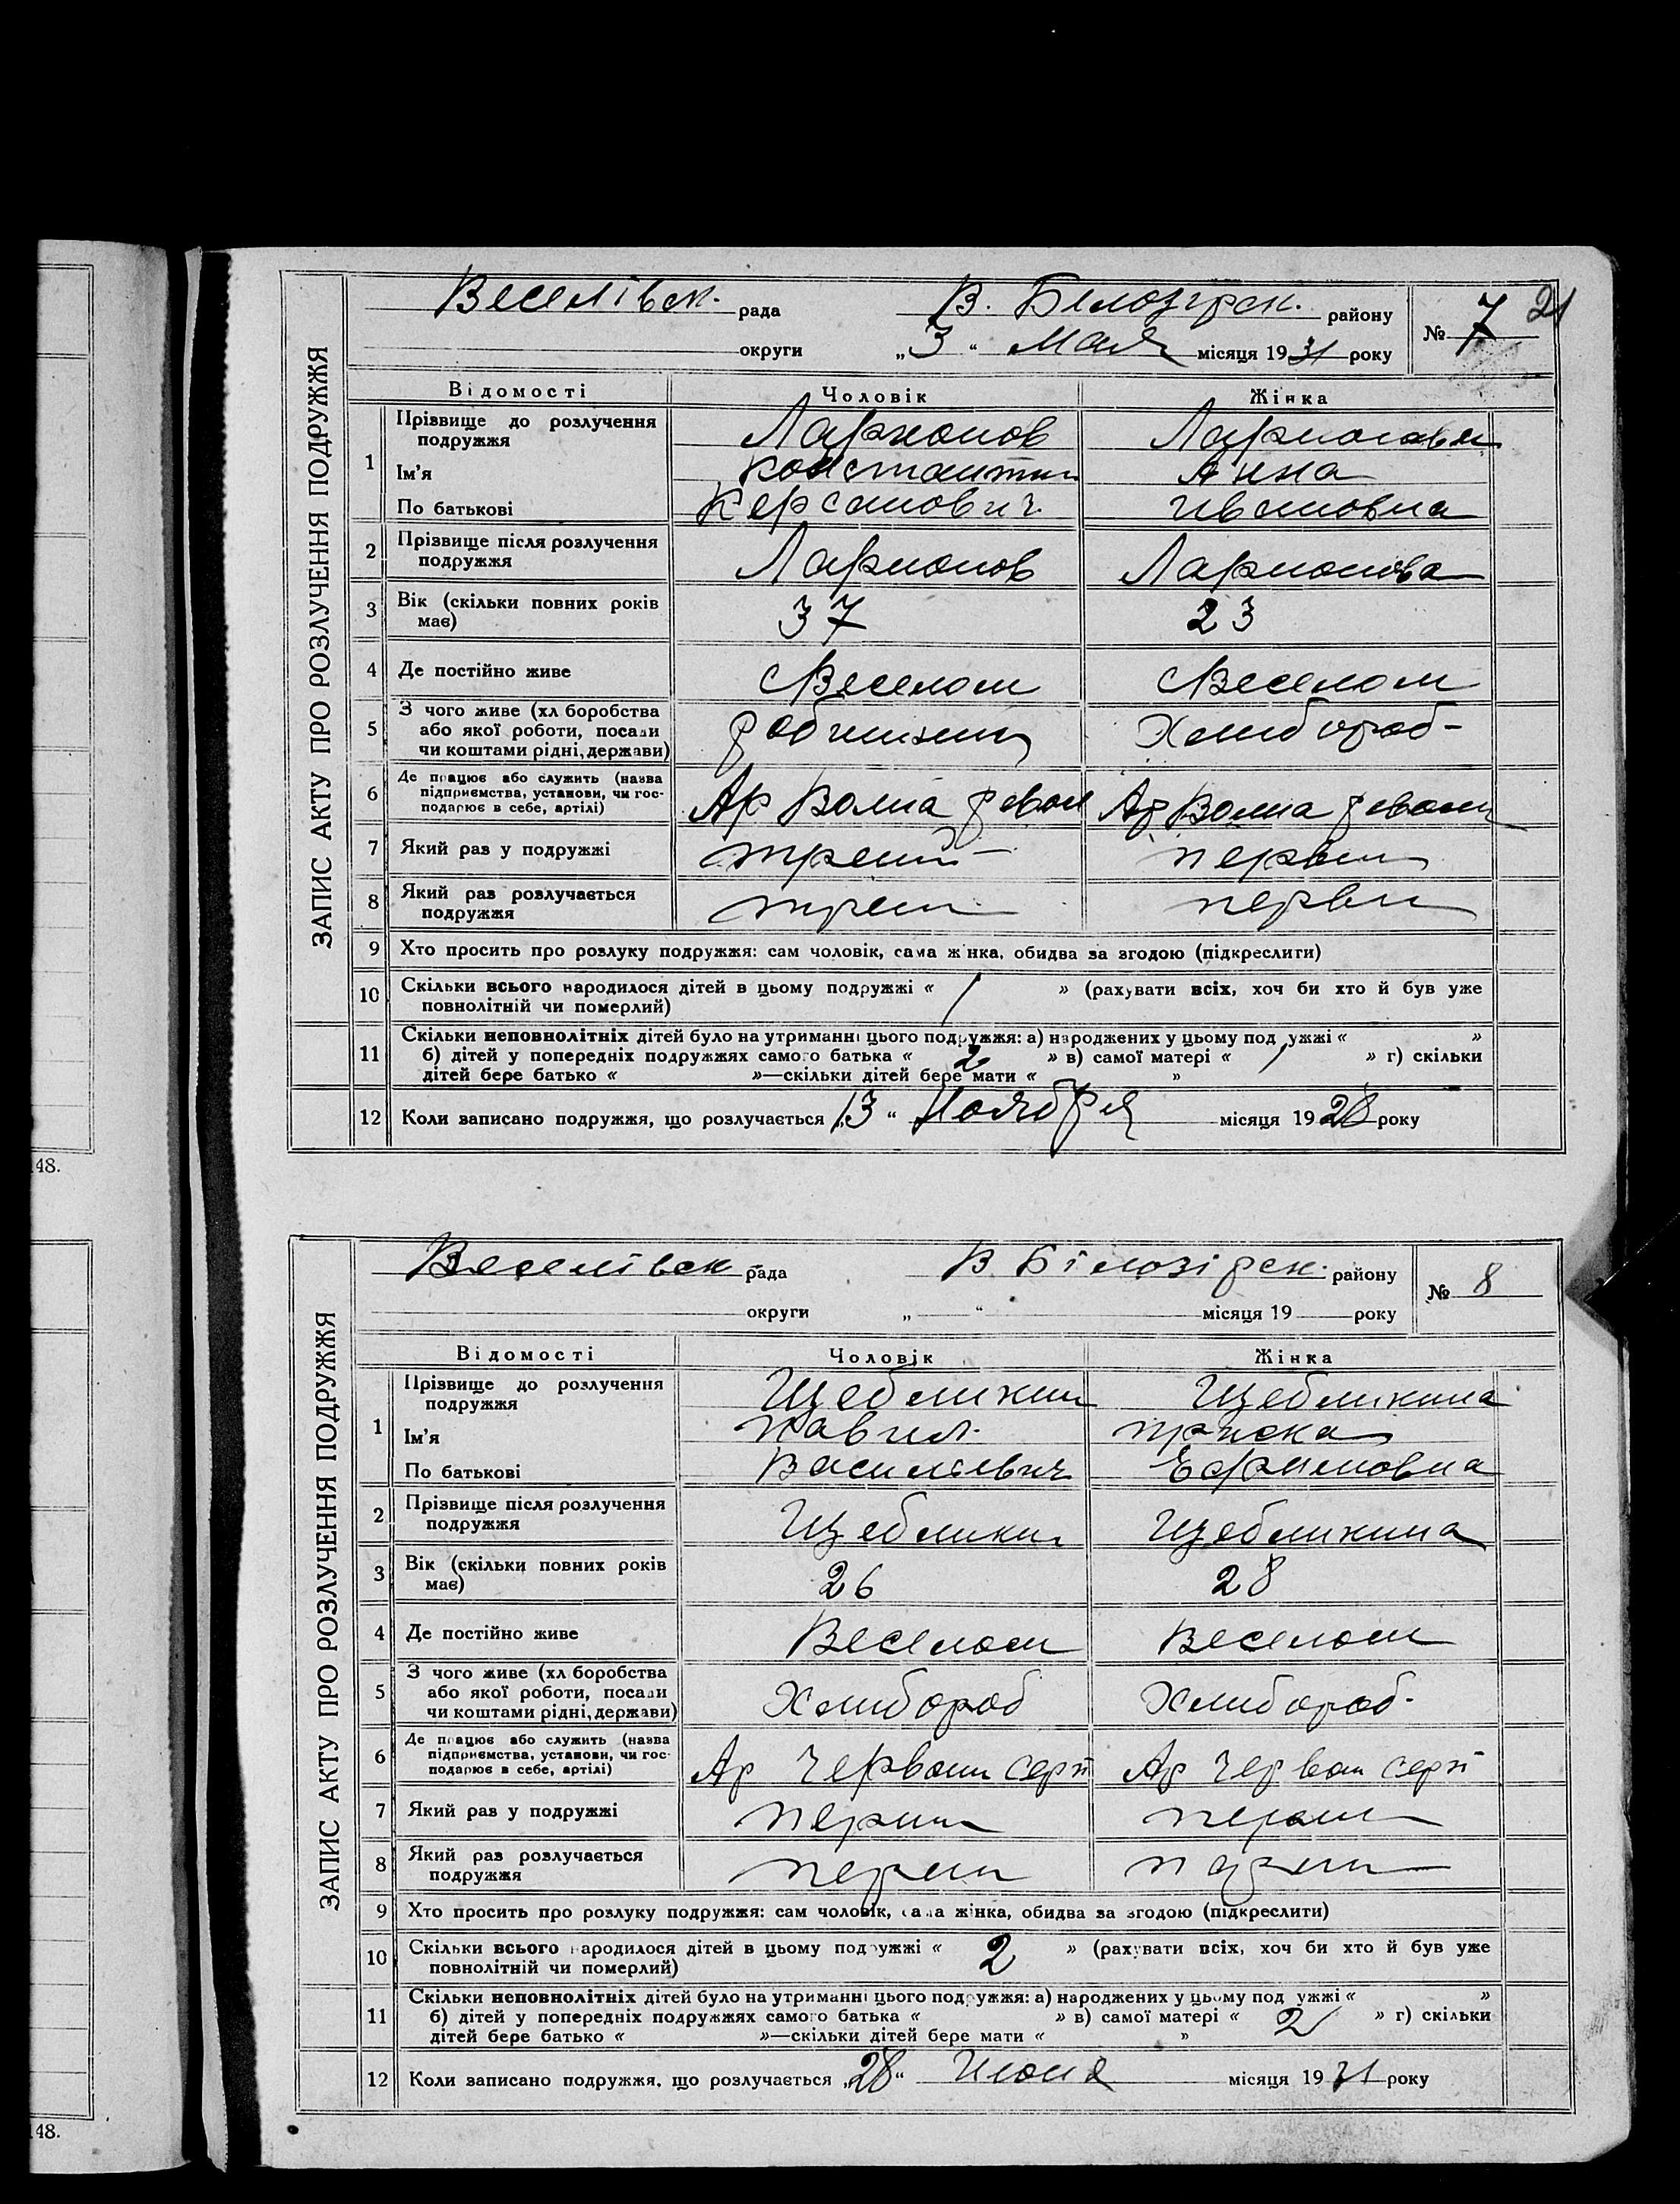 48.
48.
21
ЗАПИС АКТУ ПРО РОЗЛУЧЕННЯ ПОДРУЖЖЯ
Веселівск. рада В. Белозірск. району № 7
округи „3“ Мая місяця 1931 року
Відомості Чоловік Жінка
1 Прізвище до розлучення подружжя Ларионов Ларионова
Ім'я Константин Анна
По батькові Керсанович Ивановна
2 Прізвище після розлучення подружжя Ларионов Ларионова
3 Вік (скільки повних років має) 37 23
4 Де постійно живе с Веселом с Веселом
5 З чого живе (хл боробства або якої роботи, посади чи коштами рідні, держави) Хлибороб-
6 Де працює або служить (назва підприємства, установи, чи господарює в себе, артілі) Ар Волна револ Ар Волна револ
7 Який раз у подружжі трети первый
8 Який раз розлучається подружжя трет перви
9 Хто просить про розлуку подружжя: сам чоловік, сама жінка, обидва за згодою (підкреслити)
10 Скільки всього народилося дітей в цьому подружжі « / » (рахувати всіх, хоч би хто й був уже
повнолітній чи померлий)
11 Скільки неповнолітніх дітей було на утриманні цього подружжя: а) народжених у цьому подружжі « »
б) дітей у попередніх подружжях самого батька « 2 » в) самої матері « / » г) скільки
дітей бере батько « »—скільки дітей бере мати « »
12 Коли записано подружжя, що розлучається „13“ Ноября місяця 1928 року
ЗАПИС АКТУ ПРО РОЗЛУЧЕННЯ ПОДРУЖЖЯ
Веселівск рада В. Білозірск. району № 8
округи „ “ місяця 19 року
Відомості Чоловік Жінка
1 Прізвище до розлучення подружжя Щебликин Щебликина
Ім'я Павил.Приска
По батькові Василивич Ефимовна
2 Прізвище після розлучення подружжя Щебликин Щебликина
3 Вік (скільки повних років має) 26 28
4 Де постійно живе Веселом Веселом
5 З чого живе (хл боробства або якої роботи, посади чи коштами рідні, держави) Хлибороб Хлибороб-
6 Де працює або служить (назва підприємства, установи, чи господарює в себе, артілі) Ар Червони серп Ар Червон серп
7 Який раз у подружжі перши перши
8 Який раз розлучається подружжя перш перш
9 Хто просить про розлуку подружжя: сам чоловік, сама жінка, обидва за згодою (підкреслити)
10 Скільки всього народилося дітей в цьому подружжі « 2 » (рахувати всіх, хоч би хто й був уже
повнолітній чи померлий)
11 Скільки неповнолітніх дітей було на утриманні цього подружжя: а) народжених у цьому подружжі « »
б) дітей у попередніх подружжях самого батька « » в) самої матері « 2 » г) скільки
дітей бере батько « »—скільки дітей бере мати « »
12 Коли записано подружжя, що розлучається „28“ Июня місяця 1931 року